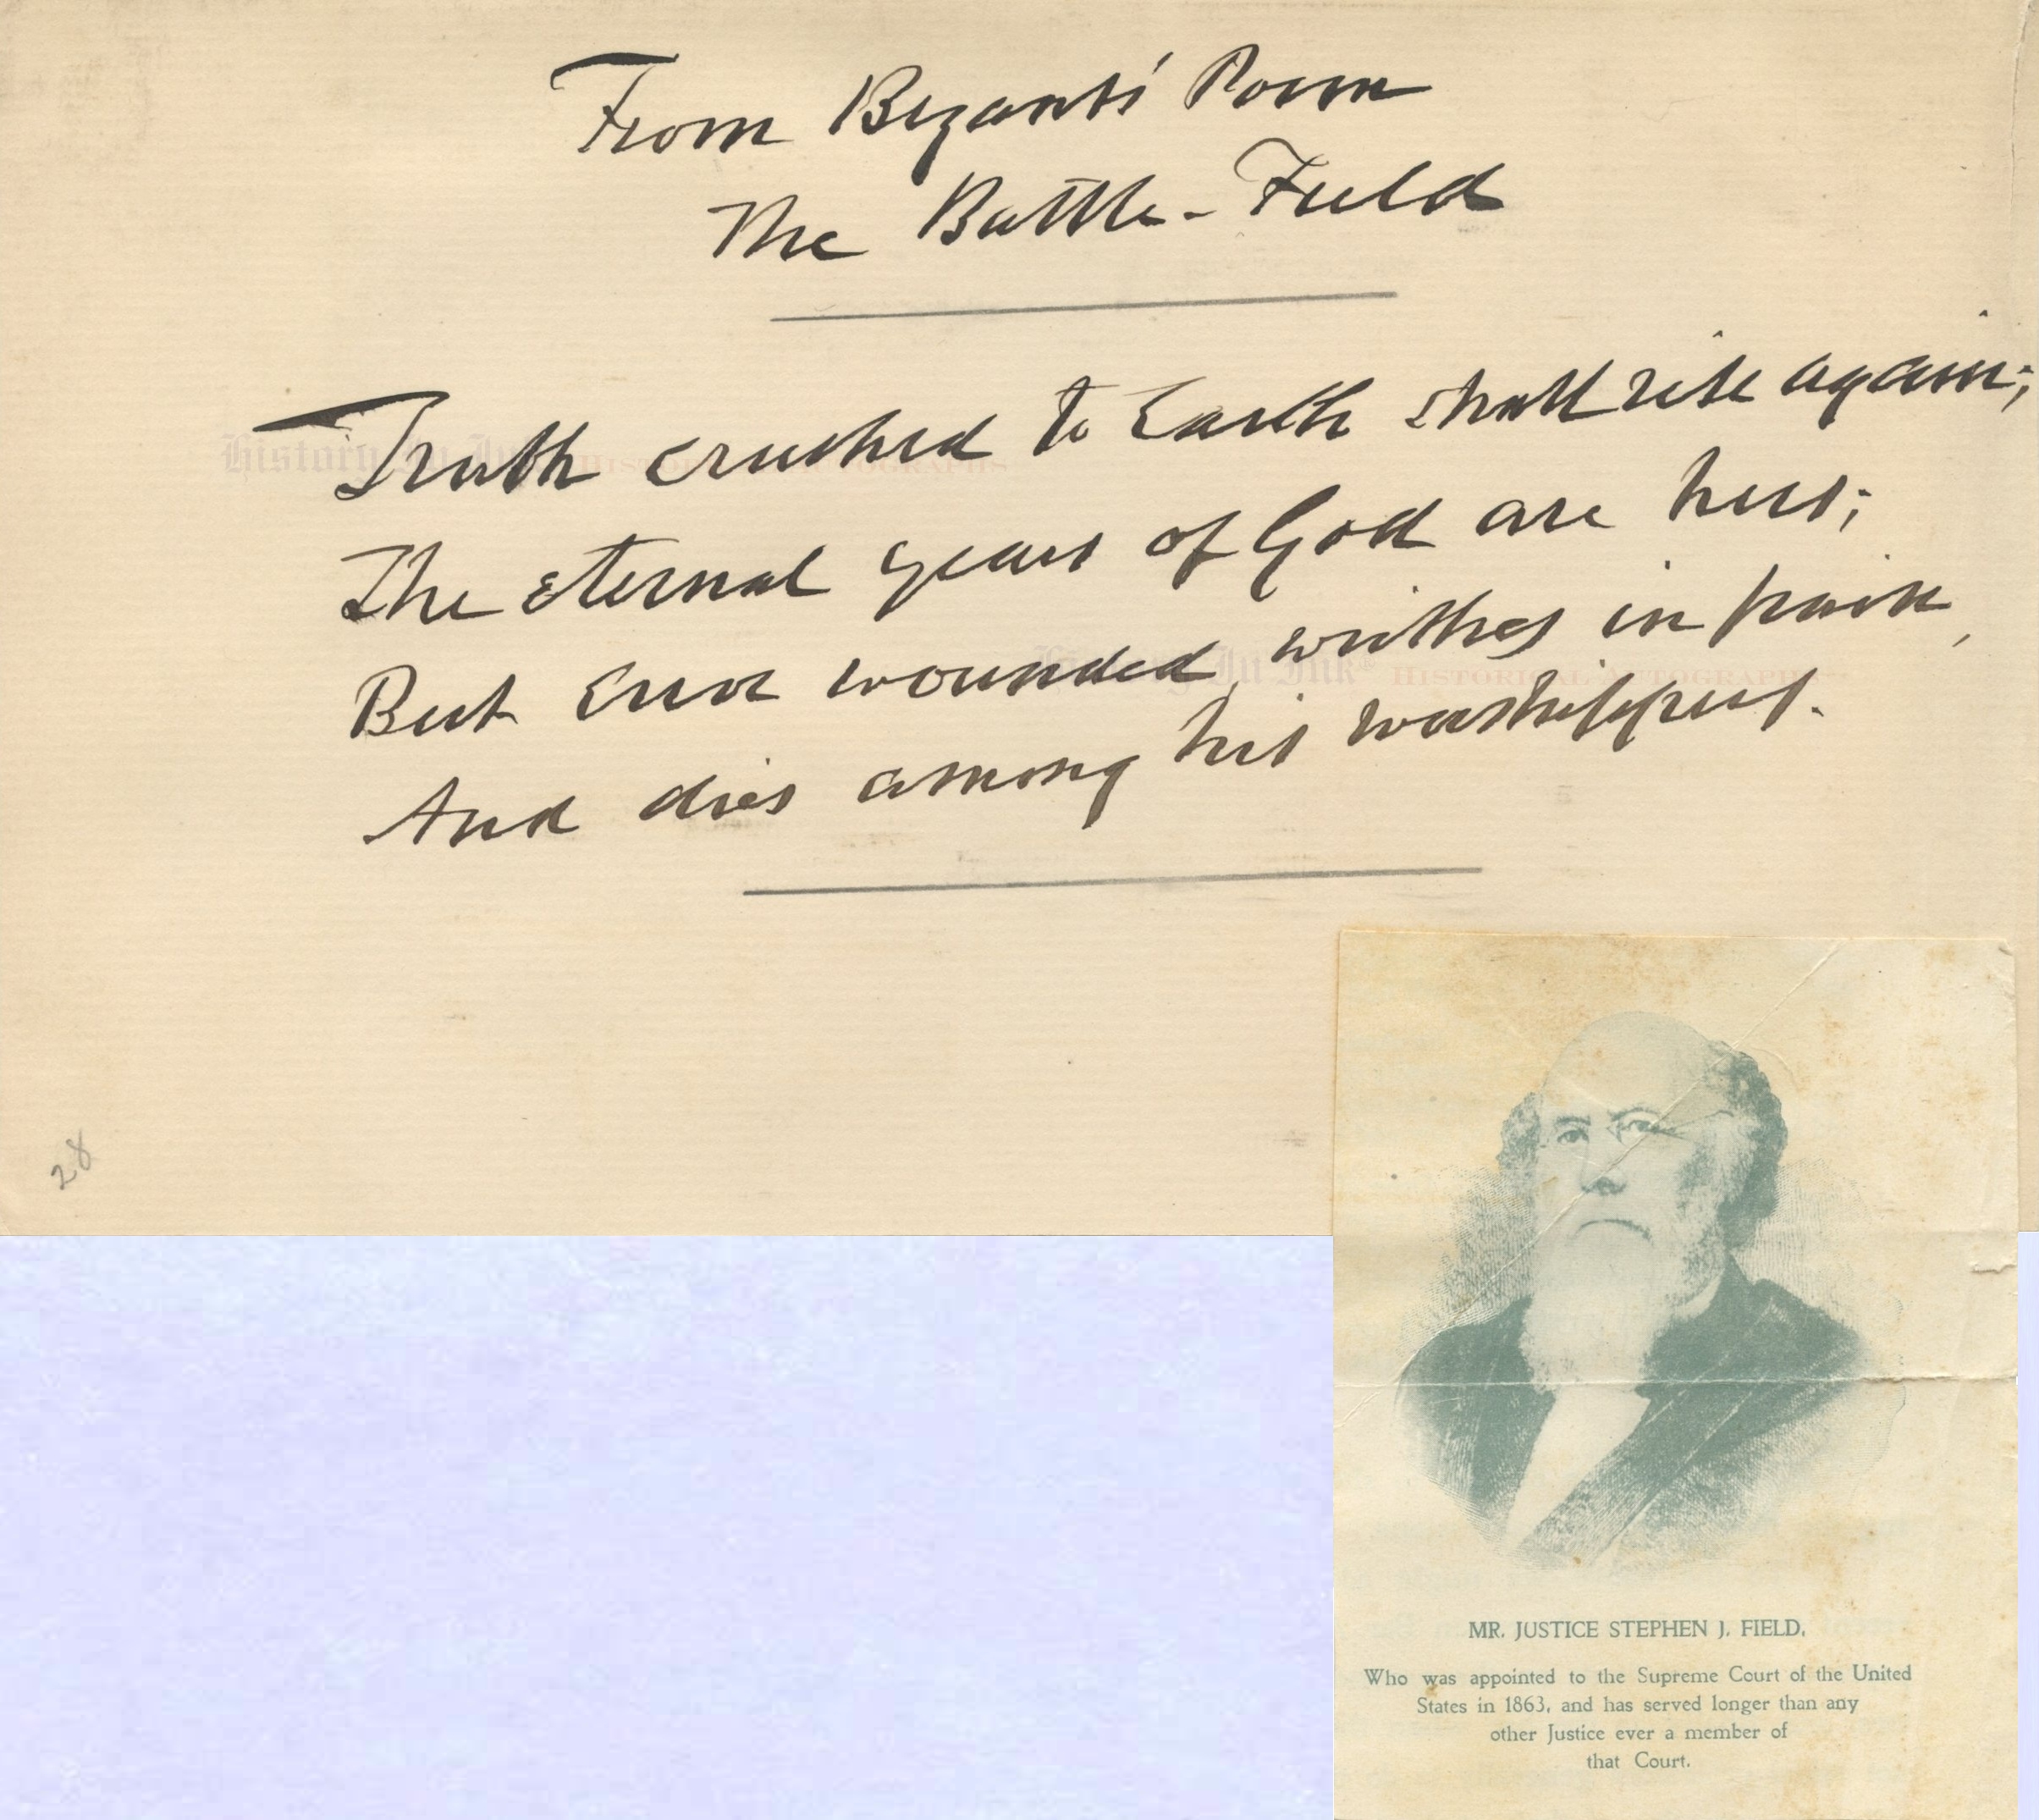 From Bryants' Poem
The Battle-Field
Truth crushed to Earth shall rise again;
The eternal years of God are hers;
But Error wounded, writhes in pain,
And dies among his worshippers.
History In Ink® HISTORICAL AUTOGRAPHS
History In Ink® HISTORICAL AUTOGRAPHS
28
MR. JUSTICE STEPHEN J. FIELD,
Who was appointed to the Supreme Court of the United
States in 1863, and has served longer than any
other Justice ever a member of
that Court.